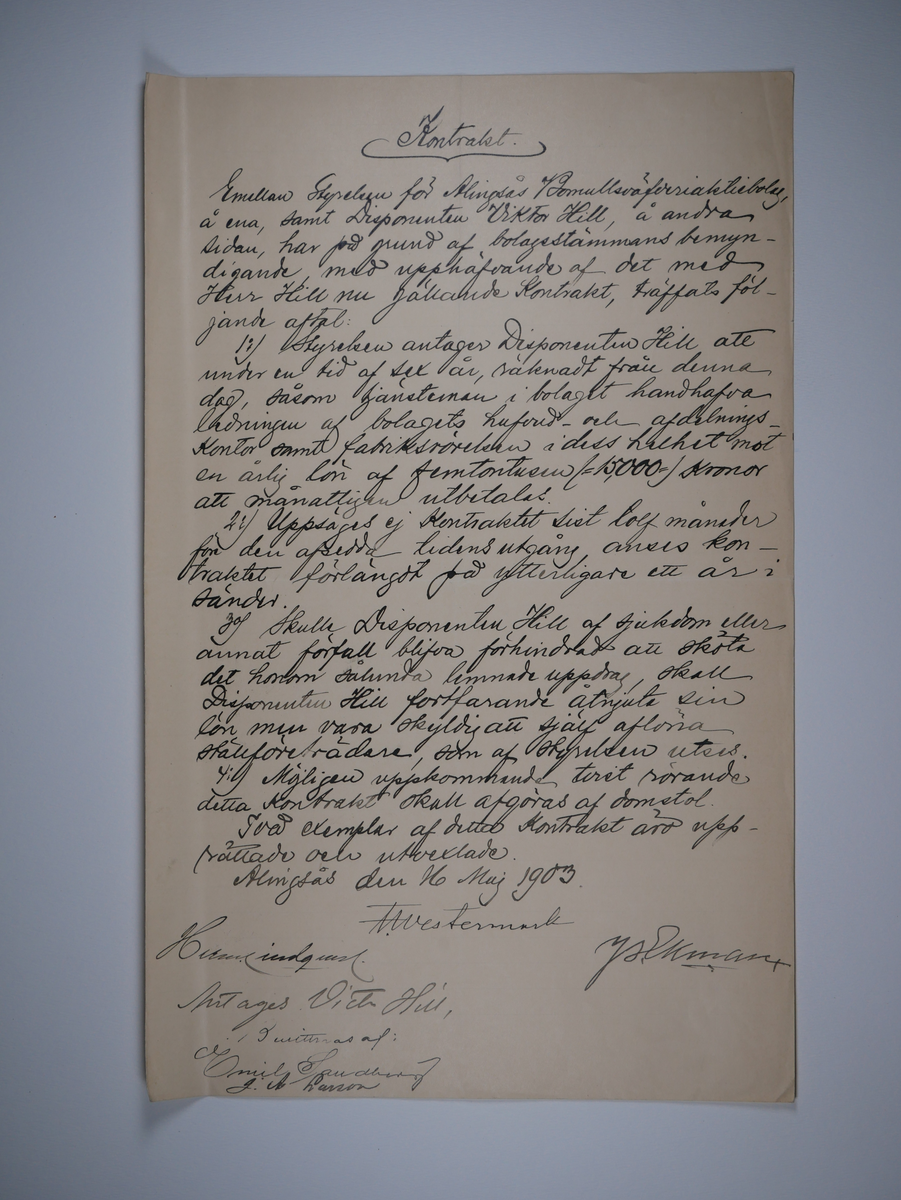 Kontrakt.
Emellan Styrelsen för Alingsås Bomullsväfveriaktiebolag,
å ena, samt Disponenten Viktor Hill, å andra
sidan, har på grund af bolagsstämmans bemyn-
digande, med upphäfvande af det med
Herr Hill nu gällande Kontrakt, träffats föl-
jande aftal:
1:) Styrelsen antager Disponenten Hill att
under en tid af sex år, räknadt från denna
dag, såsom tjänsteman i bolaget handhafva
ledningen af bolagets hufvud- och afdelnings-
Kontor samt fabriksrörelsen i dess helhet mot
en årlig lön af femtontusen (=15,000=) Kronor
att månatligen utbetalas.
2:) Uppsäges ej Kontraktet sist tolf månader
före den afsedda tidens utgång, anses kon-
traktet förlängdt på ytterligare ett år i
sänder.
3:) Skulle Disponenten Hill af sjukdom eller
annat förfall blifva förhindrad att sköta
det honom sålunda lemnade uppdrag, skall
Disponenten Hill fortfarande åtnjuta sin
lön men vara skyldig att själf aflöna
ställföreträdare, som af Styrelsen utses.
4:) Möjligen uppkommande tvist rörande
detta Kontrakt skall afgöras af domstol.
Två exemplar af detta Kontrakt äro upp-
rättade och utvexlade.
Alingsås den 16 Maj 1903.
Westermark
Ekman
Antages Victor Hill,
Emil Sandberg
J. A. Larson